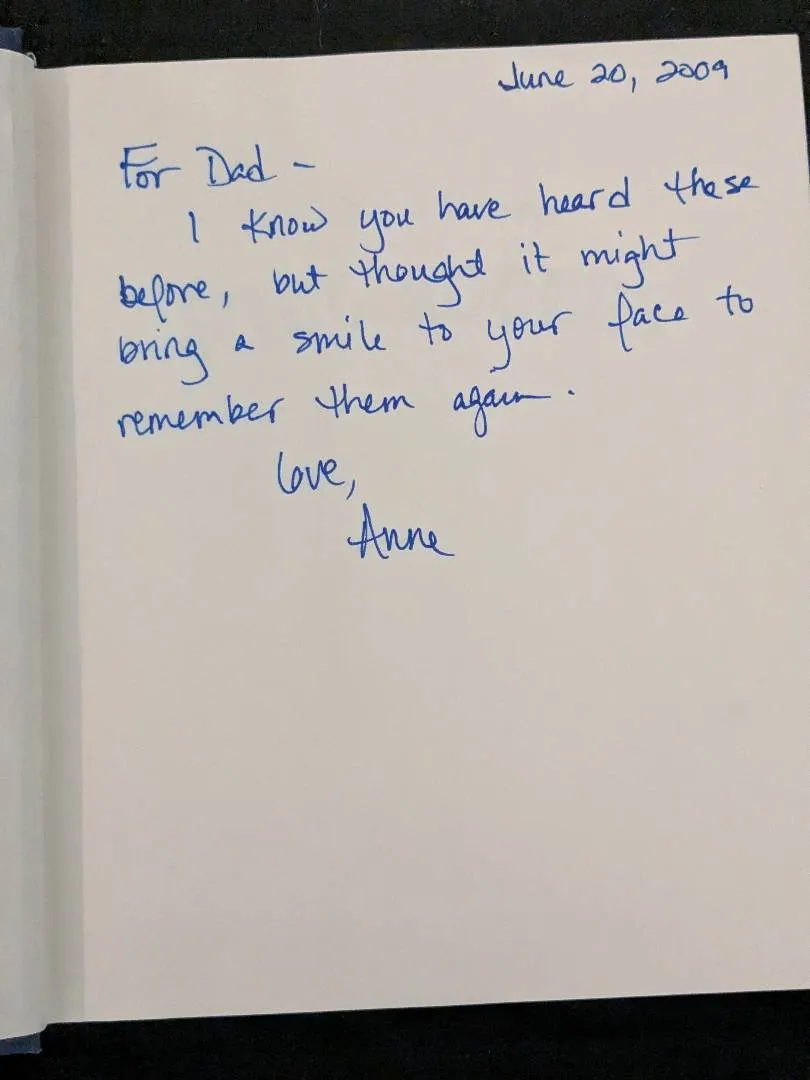 June 20, 2009
For Dad -
I know you have heard these
before, but thought it might
bring a smile to your face to
remember them again.
Love,
Anne